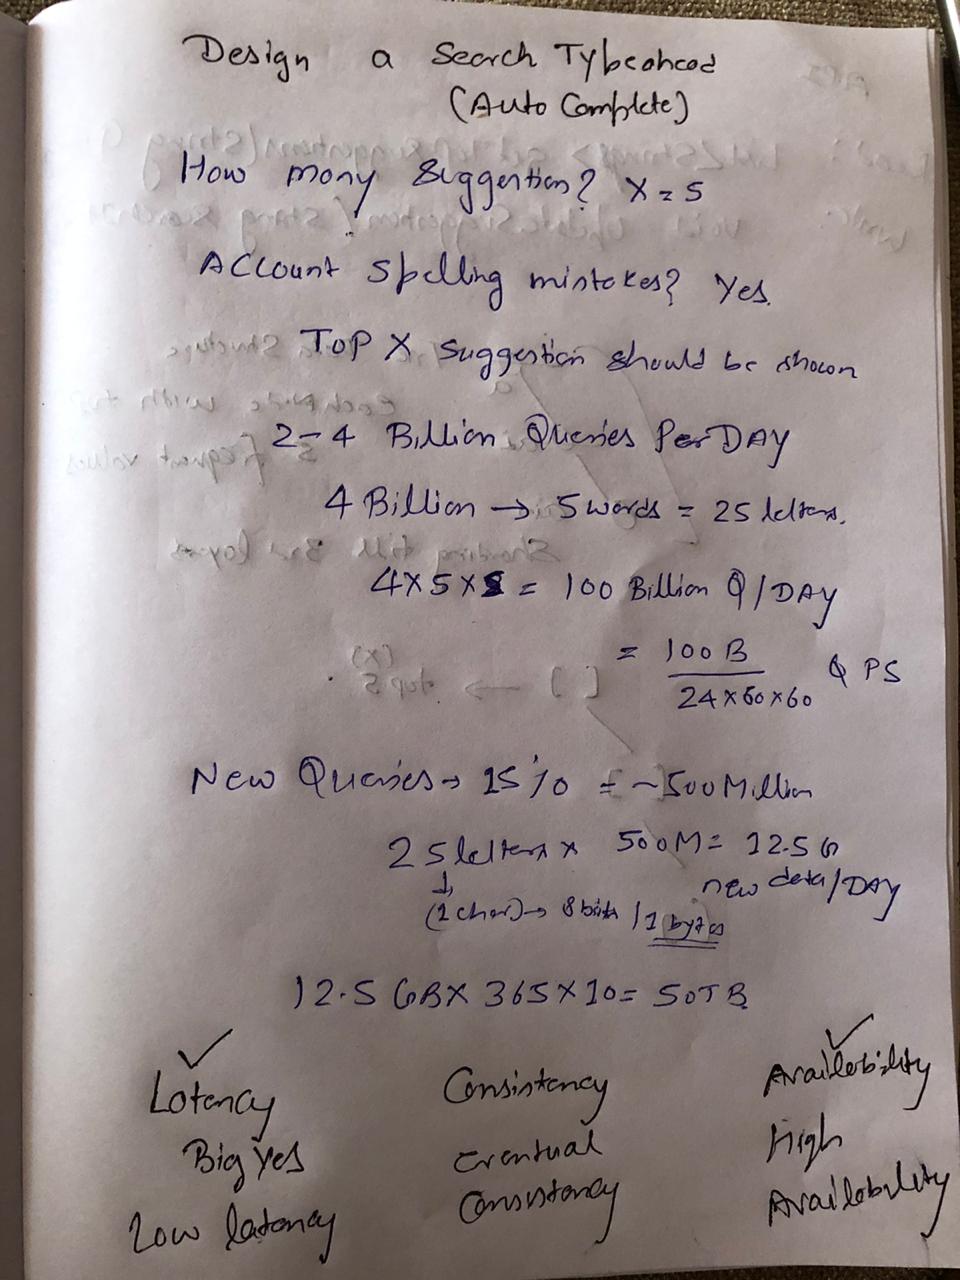 Design a Search Typeahead
(Auto Complete)
How many Suggestion? X = 5
Account spelling mistakes? Yes.
Top X suggestion should be shown
2-4 Billion Queries Per DAY
4 Billion → 5 words = 25 letters.
4 X 5 X 5 = 100 Billion Q / DAY
= 100 B / 24 x 60 x 60 Q PS
New Queries → 15% = ~500 Million
25 letters x 500M = 12.5 G
new data/DAY
(1 char) → 8 bits / 1 bytes
12.5 GB X 365 X 10 = 50TB
✓ ✓
Latency Consistency Availability
Big Yes Eventual High
Low latency Consistency Availability